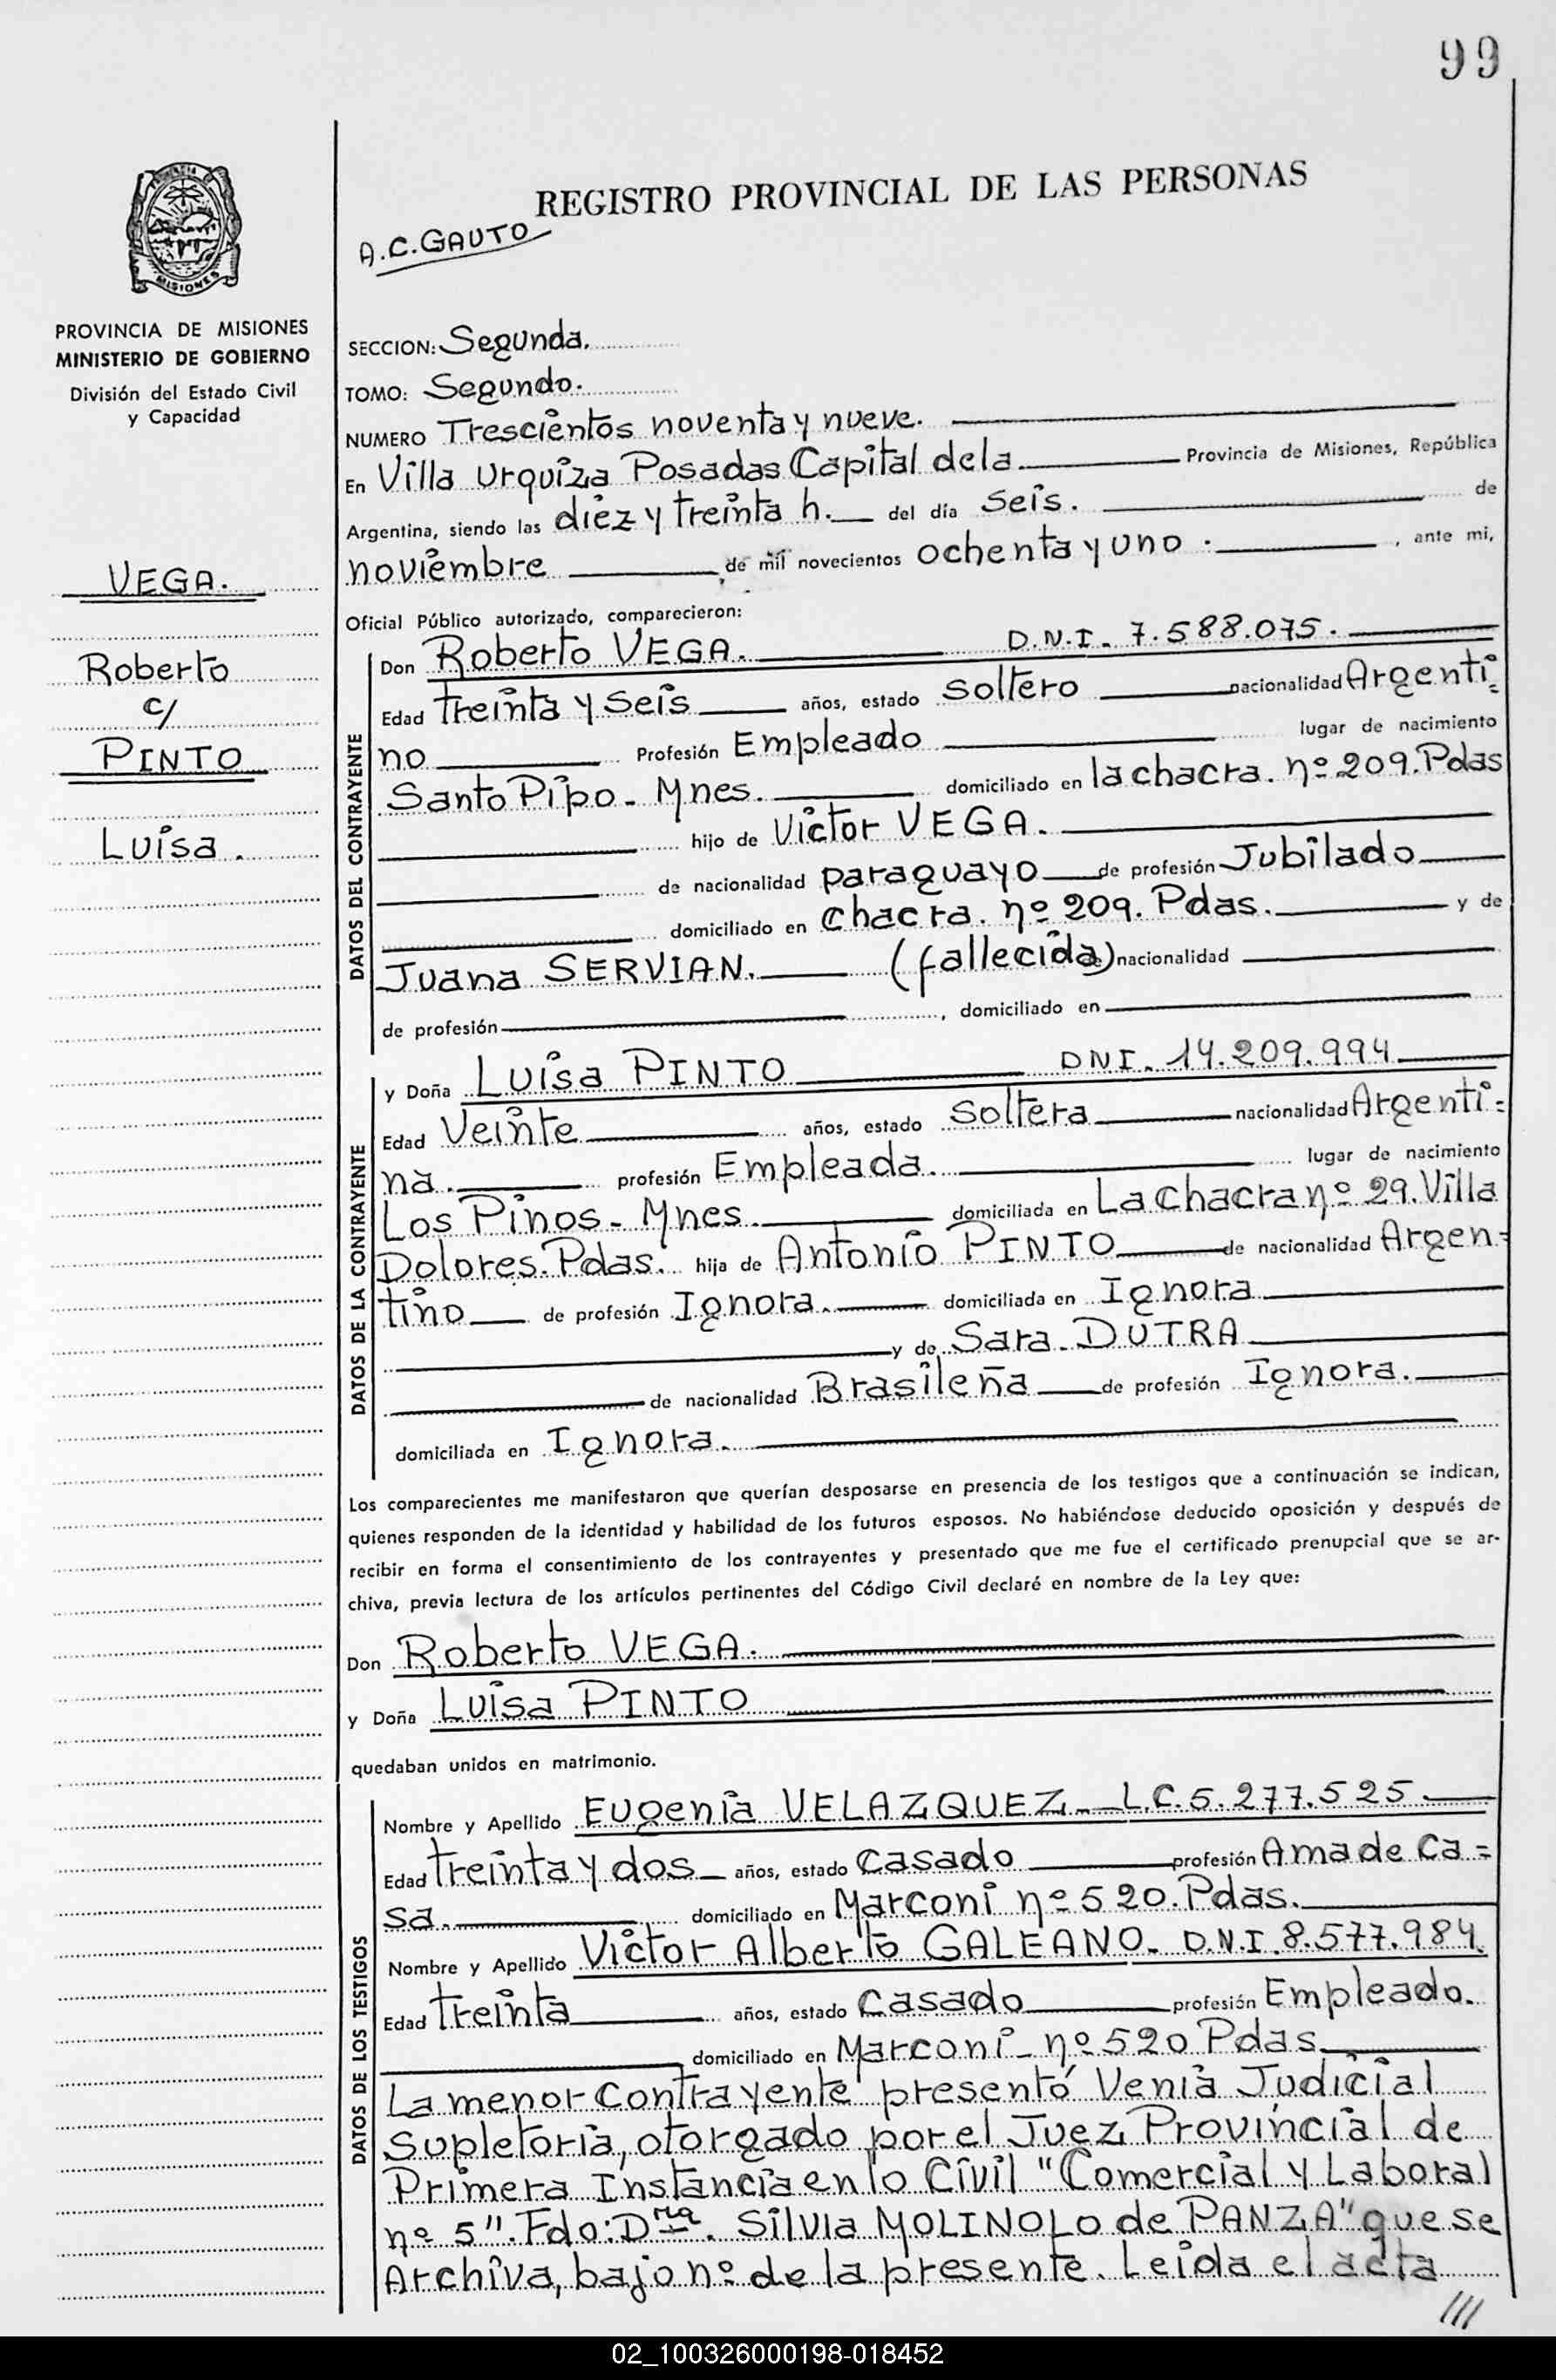 99
REGISTRO PROVINCIAL DE LAS PERSONAS
A.C.GAUTO
MISIONES
PROVINCIA DE MISIONES
MINISTERIO DE GOBIERNO
División del Estado Civil
y Capacidad
VEGA.
Roberto
c/
PINTO
Luisa.
SECCION: Segunda.
TOMO: Segundo.
NUMERO Trescientos noventa y nueve.
En Villa Urquiza Posadas Capital dela Provincia de Misiones, República
Argentina, siendo las diez y treinta h. del día Seis. de
noviembre de mil novecientos ochenta y uno. , ante mi,
Oficial Público autorizado, comparecieron:
DATOS DEL CONTRAYENTE
Don Roberto VEGA. D.N.I. 7.588.075.
Edad treinta y seis años, estado soltero nacionalidad Argenti=
no Profesión Empleado lugar de nacimiento
Santo Pipo - Mnes. domiciliado en la chacra. nº 209. Pdas
hijo de Victor VEGA.
de nacionalidad paraguayo de profesión Jubilado
domiciliado en chacra. nº 209. Pdas. y de
Juana SERVIAN. (fallecida) nacionalidad
de profesión , domiciliado en
DATOS DE LA CONTRAYENTE
y Doña Luisa PINTO DNI. 14.209.994
Edad Veinte años, estado soltera nacionalidad Argenti=
na. profesión Empleada. lugar de nacimiento
Los Pinos - Mnes. domiciliada en La chacra nº 29. Villa
Dolores. Pdas. hija de Antonio PINTO de nacionalidad Argen=
tino de profesión Ignora. domiciliada en Ignora
y de Sara DUTRA
de nacionalidad Brasileña de profesión Ignora.
domiciliada en Ignora.
Los comparecientes me manifestaron que querían desposarse en presencia de los testigos que a continuación se indican,
quienes responden de la identidad y habilidad de los futuros esposos. No habiéndose deducido oposición y después de
recibir en forma el consentimiento de los contrayentes y presentado que me fue el certificado prenupcial que se ar-
chiva, previa lectura de los artículos pertinentes del Código Civil declaré en nombre de la Ley que:
Don Roberto VEGA.
y Doña Luisa PINTO
quedaban unidos en matrimonio.
DATOS DE LOS TESTIGOS
Nombre y Apellido Eugenia VELAZQUEZ - L.C. 5.277.525
Edad treinta y dos años, estado casado profesión Ama de ca=
sa. domiciliado en Marconi nº 520. Pdas.
Nombre y Apellido Victor Alberto GALEANO - D.N.I. 8.577.984.
Edad treinta años, estado casado profesión Empleado.
domiciliado en Marconi - nº 520 Pdas
La menor contrayente presentó Venia Judicial
Supletoria, otorgado por el Juez Provincial de
Primera Instancia en lo Civil "Comercial y Laboral
nº 5". Fdo: Dra. Silvia MOLINOLO de PANZA" que se
Archiva, bajo nº de la presente. Leida el acta
///
02_100326000198-018452